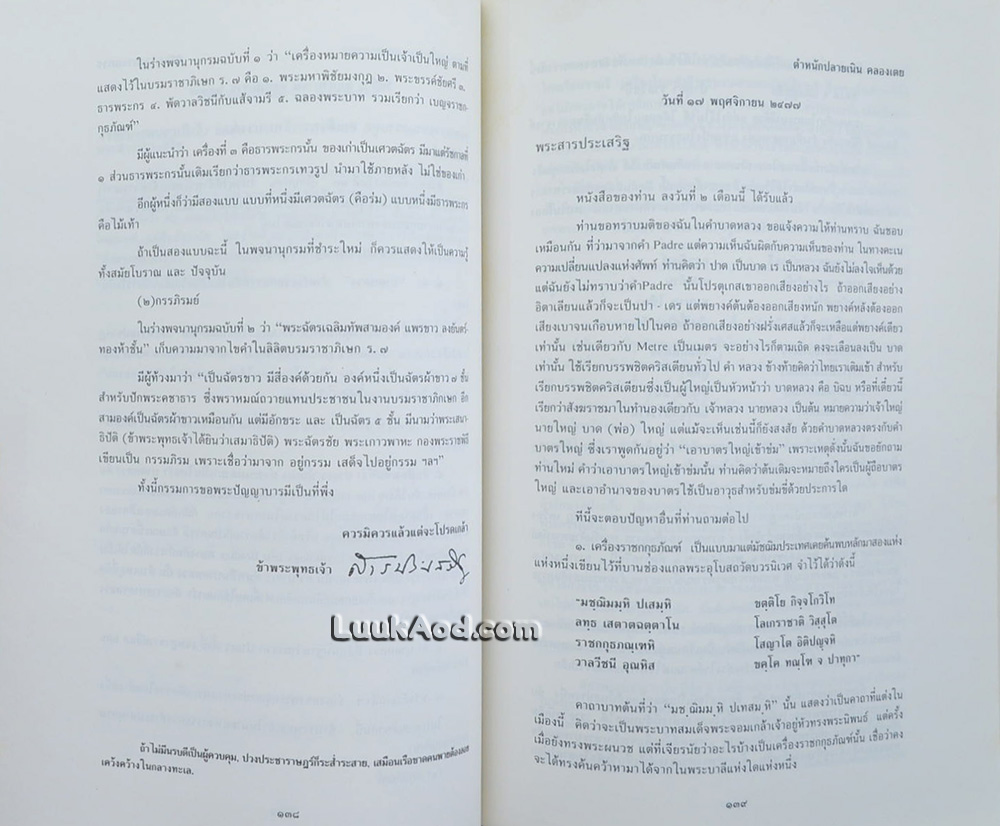 ในร่างพจนานุกรมฉบับที่ ๑ ว่า “เครื่องหมายความเป็นเจ้าเป็นใหญ่ ตามที่
แสดงไว้ในบรมราชาภิเษก ร. ๗ คือ ๑. พระมหาพิชัยมงกุฎ ๒. พระขรรค์ชัยศรี ๓.
ธารพระกร ๔. พัดวาลวิชนีกับแส้จามรี ๕. ฉลองพระบาท รวมเรียกว่า เบญจราช-
กุธภัณฑ์”
มีผู้แนะนำว่า เครื่องที่ ๓ คือธารพระกรนั้น ของเก่าเป็นเศวตฉัตร มีมาแต่รัชกาลที่
๑ ส่วนธารพระกรนั้นเดิมเรียกว่าธารพระกรเทวรูป นำมาใช้ภายหลัง ไม่ใช่ของเก่า
อีกผู้หนึ่งก็ว่ามีสองแบบ แบบที่หนึ่งมีเศวตฉัตร (คือร่ม) แบบหนึ่งมีธารพระกร
คือไม้เท้า
ถ้าเป็นสองแบบฉะนี้ ในพจนานุกรมที่ชำระใหม่ ก็ควรแสดงให้เป็นความรู้
ทั้งสมัยโบราณ และ ปัจจุบัน
(๒) กรรภิรมย์
ในร่างพจนานุกรมฉบับที่ ๒ ว่า “พระฉัตรเฉลิมทัพสามองค์ แพรขาว ลงยันตร์
ทองห้าชั้น” เก็บความมาจากไขคำในลิลิตบรมราชาภิเษก ร. ๗
มีผู้ท้วงมาว่า “เป็นฉัตรขาว มีสี่องค์ด้วยกัน องค์หนึ่งเป็นฉัตรผ้าขาว ๗ ชั้น
สำหรับปักพระคชาธาร ซึ่งพราหมณ์ถวายแทนประชาชนในงานบรมราชาภิเษก อีก
สามองค์เป็นฉัตรผ้าขาวเหมือนกัน แต่มียักขระ และ เป็นฉัตร ๕ ชั้น มีนามว่าพระเสนา-
ธิปัติ (ข้าพระพุทธเจ้าได้ยินว่าเสมาธิปัติ) พระฉัตรชัย พระเกาวพาหะ กองพระราชพิธี
เขียนเป็น กรรมภิรม เพราะเชื่อว่ามาจาก อยู่กรรม เสด็จไปอยู่กรรม ฯลฯ”
ทั้งนี้กรรมการขอพระปัญญาบารมีเป็นที่พึ่ง
ควรมิควรแล้วแต่จะโปรดเกล้า
ข้าพระพุทธเจ้า
LuukAod.com
ถ้าไม่มีนรบดีเป็นผู้ควบคุม, ปวงประชาราษฎร์ก็ระส่ำระสาย, เสมือนเรือขาดคนพายต้องลอย
เคว้งคว้างในกลางทะเล.
๑๓๘
ตำหนักปลายเนิน คลองเตย
วันที่ ๑๗ พฤศจิกายน ๒๔๗๗
พระสารประเสริฐ
หนังสือของท่าน ลงวันที่ ๒ เดือนนี้ ได้รับแล้ว
ท่านขอทราบมติของฉันในคำบาดหลวง ขอแจ้งความให้ท่านทราบ ฉันชอบ
เหมือนกัน ที่ว่ามาจากคำ Padre แต่ความเห็นฉันผิดกับความเห็นของท่าน ในทางคะเน
ความเปลี่ยนแปลงแห่งศัพท์ ท่านคิดว่า ปาด เป็นบาด เร เป็นหลวง ฉันยังไม่ลงใจเห็นด้วย
แต่ฉันยังไม่ทราบว่าคำPadre นั้นโปรตุเกสเขาออกเสียงอย่างไร ถ้าออกเสียงอย่าง
อิตาเลียนแล้วก็จะเป็นปา - เดร แต่พยางค์ต้นต้องออกเสียงหนัก พยางค์หลังต้องออก
เสียงเบาจนเกือบหายไปในคอ ถ้าออกเสียงอย่างฝรั่งเศสแล้วก็จะเหลือแต่พยางค์เดียว
เท่านั้น เช่นเดียวกับ Metre เป็นเมตร จะอย่างไรก็ตามเถิด คงจะเลือนลงเป็น บาด
เท่านั้น ใช้เรียกบรรพชิตคริสเตียนทั่วไป คำ หลวง ข้างท้ายคิดว่าไทยเราเติมเข้า สำหรับ
เรียกบรรพชิตคริสเตียนซึ่งเป็นผู้ใหญ่เป็นหัวหน้าว่า บาดหลวง คือ บิฉบ หรือที่เดี๋ยวนี้
เรียกว่าสังฆราชมาในทำนองเดียวกับ เจ้าหลวง นายหลวง เป็นต้น หมายความว่าเจ้าใหญ่
นายใหญ่ บาด (พ่อ) ใหญ่ แต่แม้จะเห็นเช่นนี้ก็ยังสงสัย ด้วยคำบาดหลวงตรงกับคำ
บาตรใหญ่ ซึ่งเราพูดกันอยู่ว่า “เอาบาตรใหญ่เข้าข่ม” เพราะเหตุดั่งนั้นฉันขอยักถาม
ท่านใหม่ คำว่าเอาบาตรใหญ่เข้าข่มนั้น ท่านคิดว่าต้นเดิมจะหมายถึงใครเป็นผู้ถือบาตร
ใหญ่ และเอาอำนาจของบาตรใช้เป็นอาวุธสำหรับข่มขี่ด้วยประการใด
ทีนี้จะตอบปัญหาอื่นที่ท่านถามต่อไป
๑. เครื่องราชกกุธภัณฑ์ เป็นแบบมาแต่มัชฌิมประเทศเคยค้นพบหลักมาสองแห่ง
แห่งหนึ่งเขียนไว้ที่บานช่องแกลพระอุโบสถวัดบวรนิเวศ จำไว้ได้ว่าดังนี้
“มชฺฌิมมฺหิ ปเสมฺหิ ขตฺติโย กิจฺจโกวิโท
ลทฺธ เสตาตฉตฺตาโน โลเกราชาติ วิสฺสุโต
ราชกกุธภณฺเฑหิ โสญาโต อิติปญฺจหิ
วาลวีชนี อุณหิส ขคฺโค ทณฺโฑ จ ปาทุกา”
คาถาบาทต้นที่ว่า “มชฺฌิมมฺหิ ปเทสมฺหิ” นั้น แสดงว่าเป็นคาถาที่แต่งใน
เมืองนี้ คิดว่าจะเป็นพระบาทสมเด็จพระจอมเกล้าเจ้าอยู่หัวทรงพระนิพนธ์ แต่ครั้ง
เมื่อยังทรงพระผนวช แต่ที่เจียรนัยว่าอะไรบ้างเป็นเครื่องราชกกุธภัณฑ์นั้น เชื่อว่าคง
จะได้ทรงค้นคว้าหามาได้จากในพระบาลีแห่งใดแห่งหนึ่ง
๑๓๙